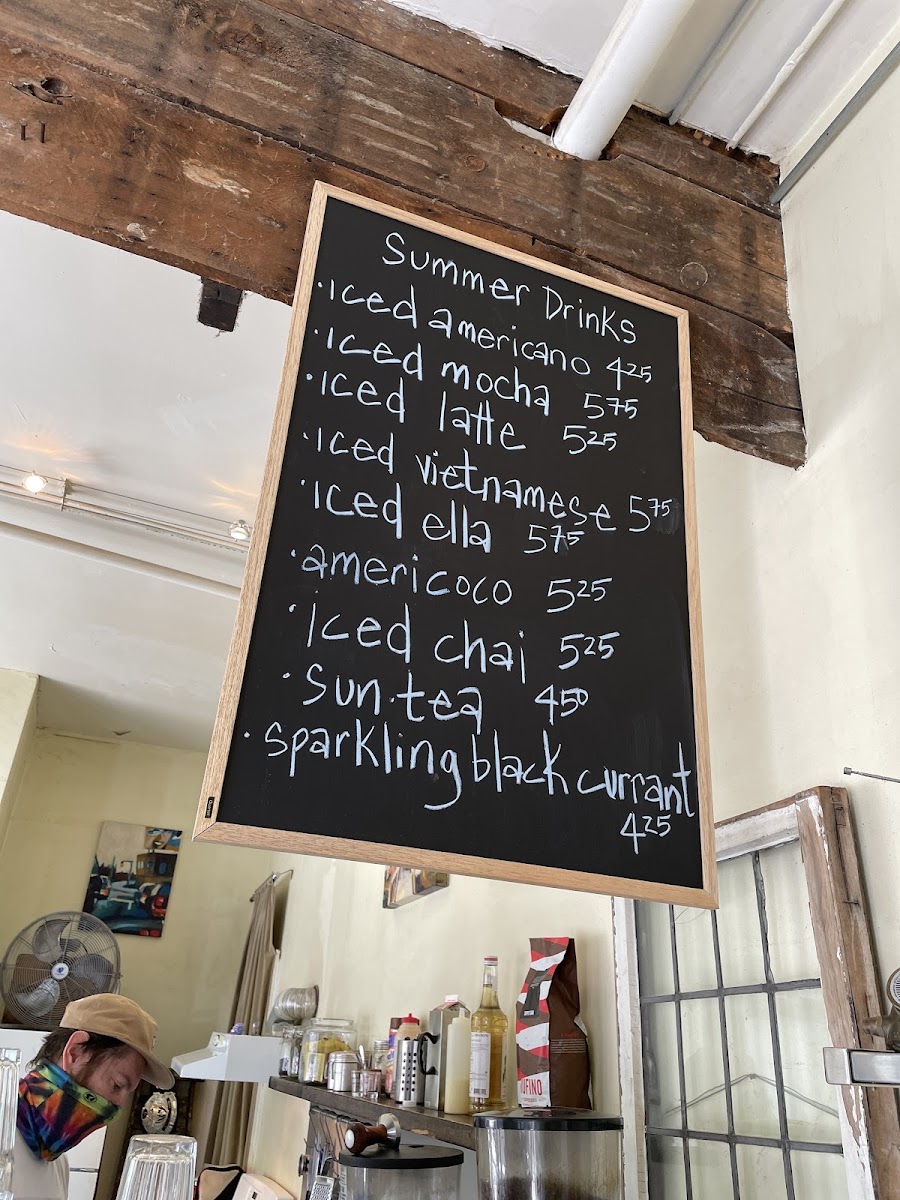 Summer Drinks
·Iced americano 4.25
·Iced mocha 5.75
·Iced latte 5.25
·Iced vietnamese 5.75
·Iced ella 5.75
·americoco 5.25
·Iced chai 5.25
·Sun·tea 4.50
·sparkling black currant
4.25
UFINO